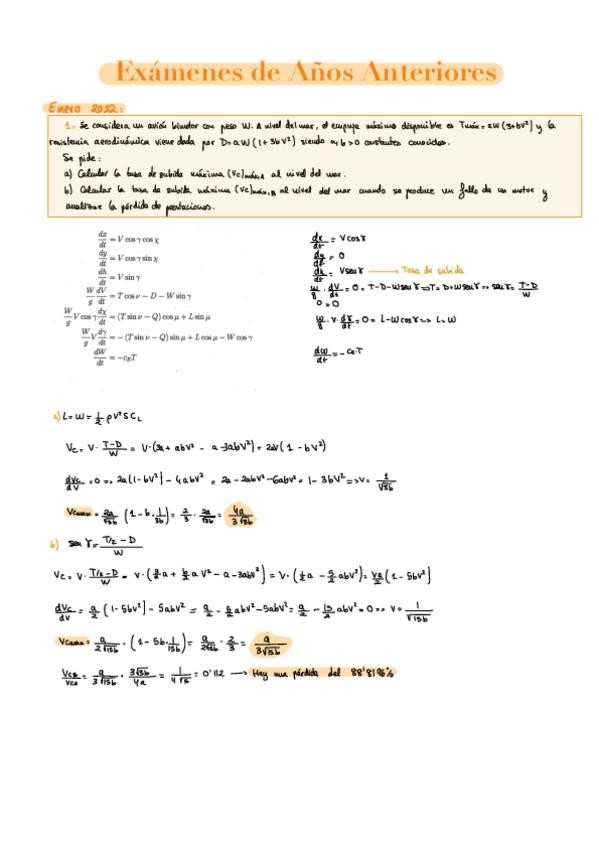 Exámenes de Años Anteriores
Enero 2022:
1.- Se considera un avión bimotor con peso W. A nivel del mar, el empuje máximo disponible es Tmáx = aW(3+bV²) y la
resistencia aerodinámica viene dada por D = aW(1+3bV²) siendo a, b > 0 constantes conocidas.
Se pide:
a) Calcular la tasa de subida máxima (Vc)máx,a al nivel del mar.
b) Calcular la tasa de subida máxima (Vc)máx,b al nivel del mar cuando se produce un fallo de un motor y
analizar la pérdida de prestaciones.
dx/dt = V cos γ cos χ
dy/dt = V cos γ sin χ
dh/dt = V sin γ
W/g dV/dt = T cos ν − D − W sin γ
W/g V cos γ dχ/dt = (T sin ν − Q) cos μ + L sin μ
W/g V dγ/dt = −(T sin ν − Q) sin μ + L cos μ − W cos γ
dW/dt = −c_E T
dx/dt = V cos γ
dy/dt = 0
dh/dt = V sen γ → Tasa de subida
W/g · dV/dt = 0 = T-D-W sen γ => T = D+W sen γ => sen γ = T-D/W
0 = 0
W/g · V · dγ/dt = 0 = L-W cos γ => L = W
dW/dt = - c_E T
a) L = W = 1/2 ρV²SC_L
Vc = V · T-D/W = V·(3a + abV² - a - 3abV²) = 2aV(1 - bV²)
dVc/dV = 0 => 2a(1-bV²) - 4abV² = 2a - 2abV² - 4abV² = 1 - 3bV² => V = 1/√3b
Vcmax = 2a/√3b (1 - b · 1/3b) = 2/3 · 2a/√3b = 4a/3√3b
b) sen γ = T/2 - D/W
Vc = V · T/2 - D/W = V·(3/2 a + b/2 aV² - a - 3abV²) = V·(1/2 a - 5/2 abV²) = Va/2 (1 - 5bV²)
dVc/dV = a/2 (1 - 5bV²) - 5abV² = a/2 - 5/2 abV² - 5abV² = a/2 - 15/2 abV² = 0 => V = 1/√15b
Vcmax = a/2√15b · (1 - 5b · 1/15b) = a/2√15b · 2/3 = a/3√15b
Vcb/Vca = a/3√15b · 3√3b/4a = 1/4√5 = 0'112 → Hay una pérdida del 88'8196%